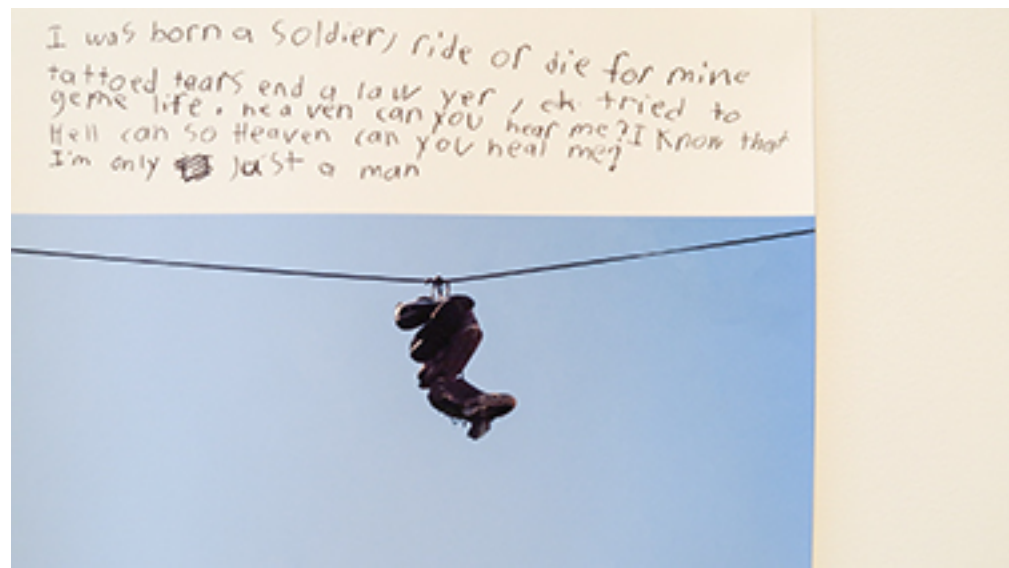 I was born a soldier, ride or die for mine
tattoed tears end a law yer, ek tried to
geme life. heaven can you hear me? I Know that
Hell can so Heaven can you heal me?
I'm only just a man